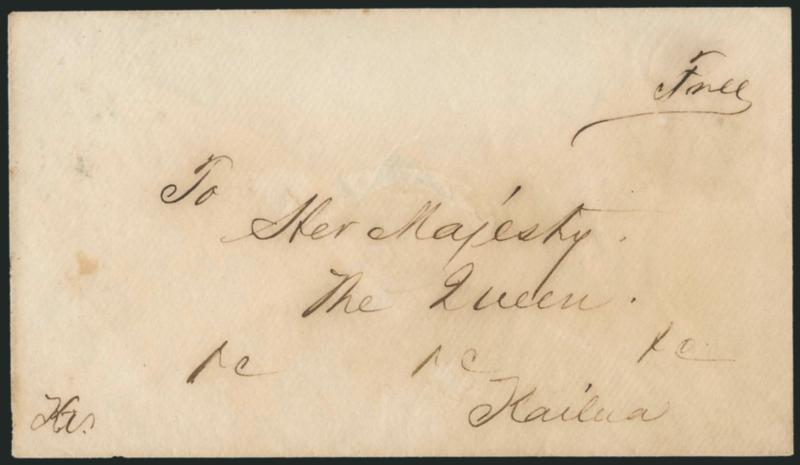 Free
To
Her Majesty.
The Queen.
&c &c &c
Kailua